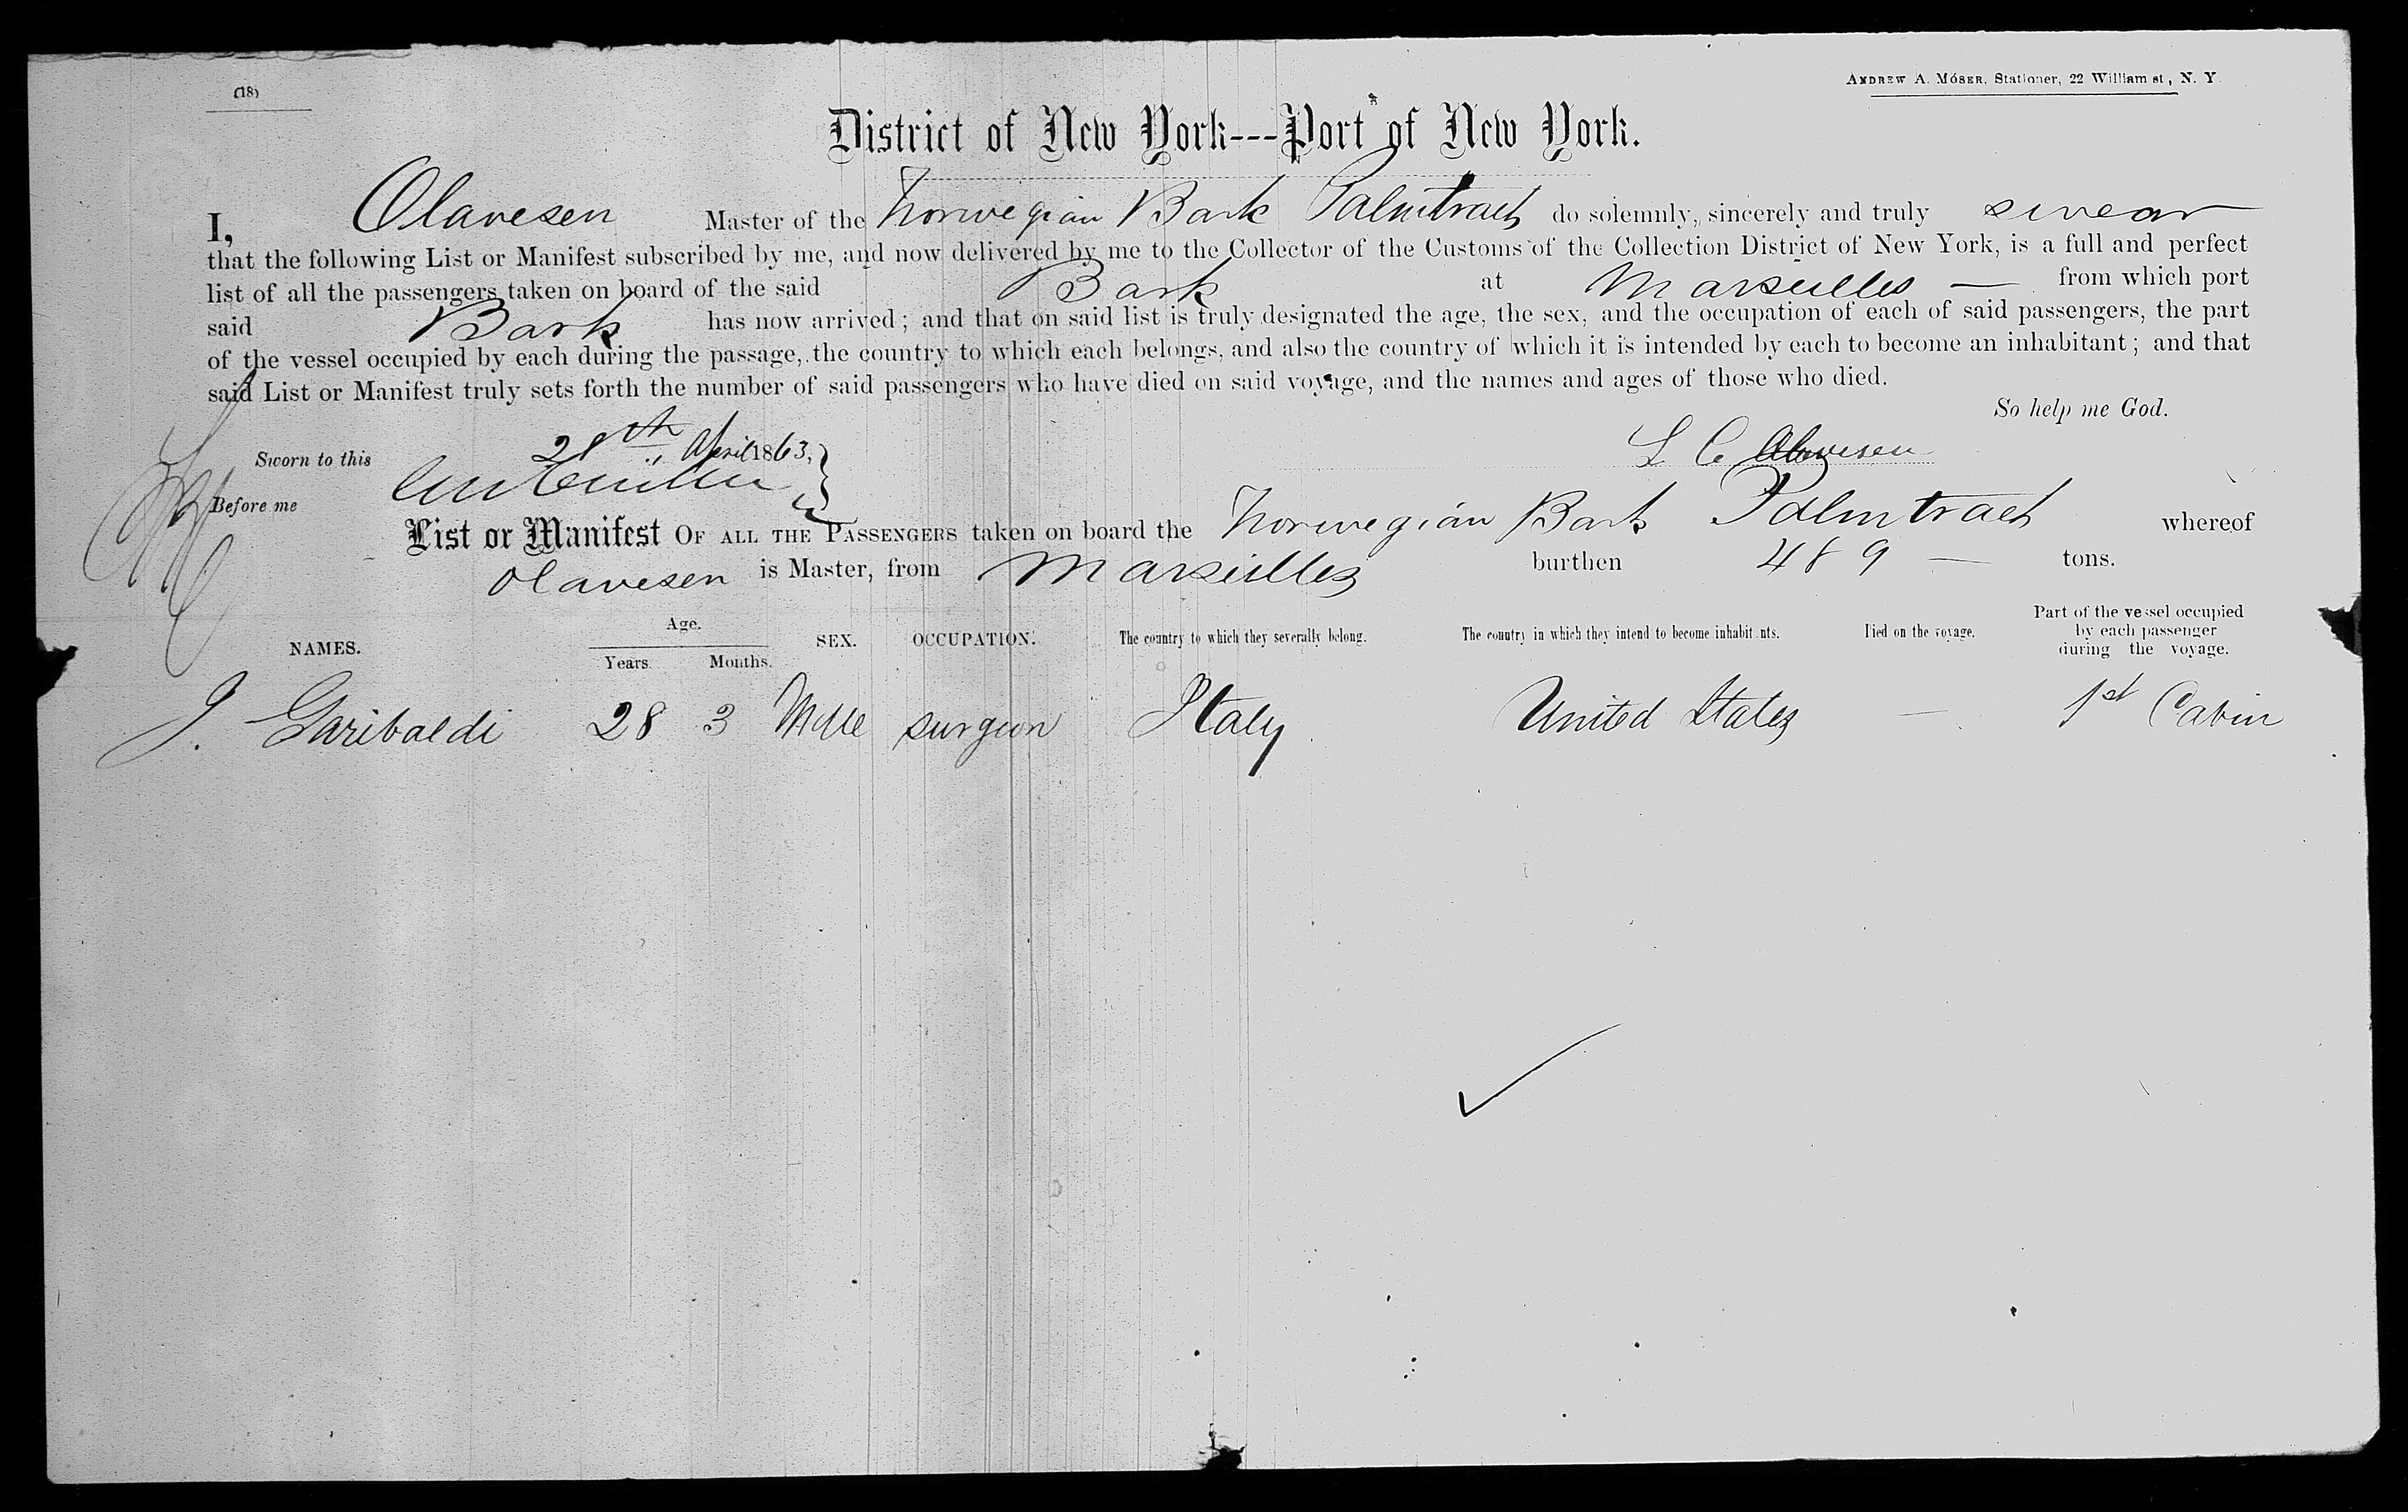 (18)
ANDREW A. MÓSER, Stationer, 22 William st., N. Y.
District of New York---Port of New York.
I, Olavesen Master of the Norwegian Bark Palmtrach do solemnly, sincerely and truly swear
that the following List or Manifest subscribed by me, and now delivered by me to the Collector of the Customs of the Collection District of New York, is a full and perfect
list of all the passengers taken on board of the said Bark at Marseilles — from which port
said Bark has now arrived; and that on said list is truly designated the age, the sex, and the occupation of each of said passengers, the part
of the vessel occupied by each during the passage, the country to which each belongs, and also the country of which it is intended by each to become an inhabitant; and that
said List or Manifest truly sets forth the number of said passengers who have died on said voyage, and the names and ages of those who died.
So help me God.
Sworn to this 28th April 1863,
L C Olavesen
Before me
List or Manifest OF ALL THE PASSENGERS taken on board the Norwegian Bark Palmtrach whereof
Olavesen is Master, from Marseilles burthen 489 — tons.
NAMES. Age. Years. Months. SEX. OCCUPATION. The country to which they severally belong. The country in which they intend to become inhabitants. Died on the voyage. Part of the vessel occupied by each passenger during the voyage.
J. Garibaldi 28 3 Male surgeon Italy United States — 1st Cabin